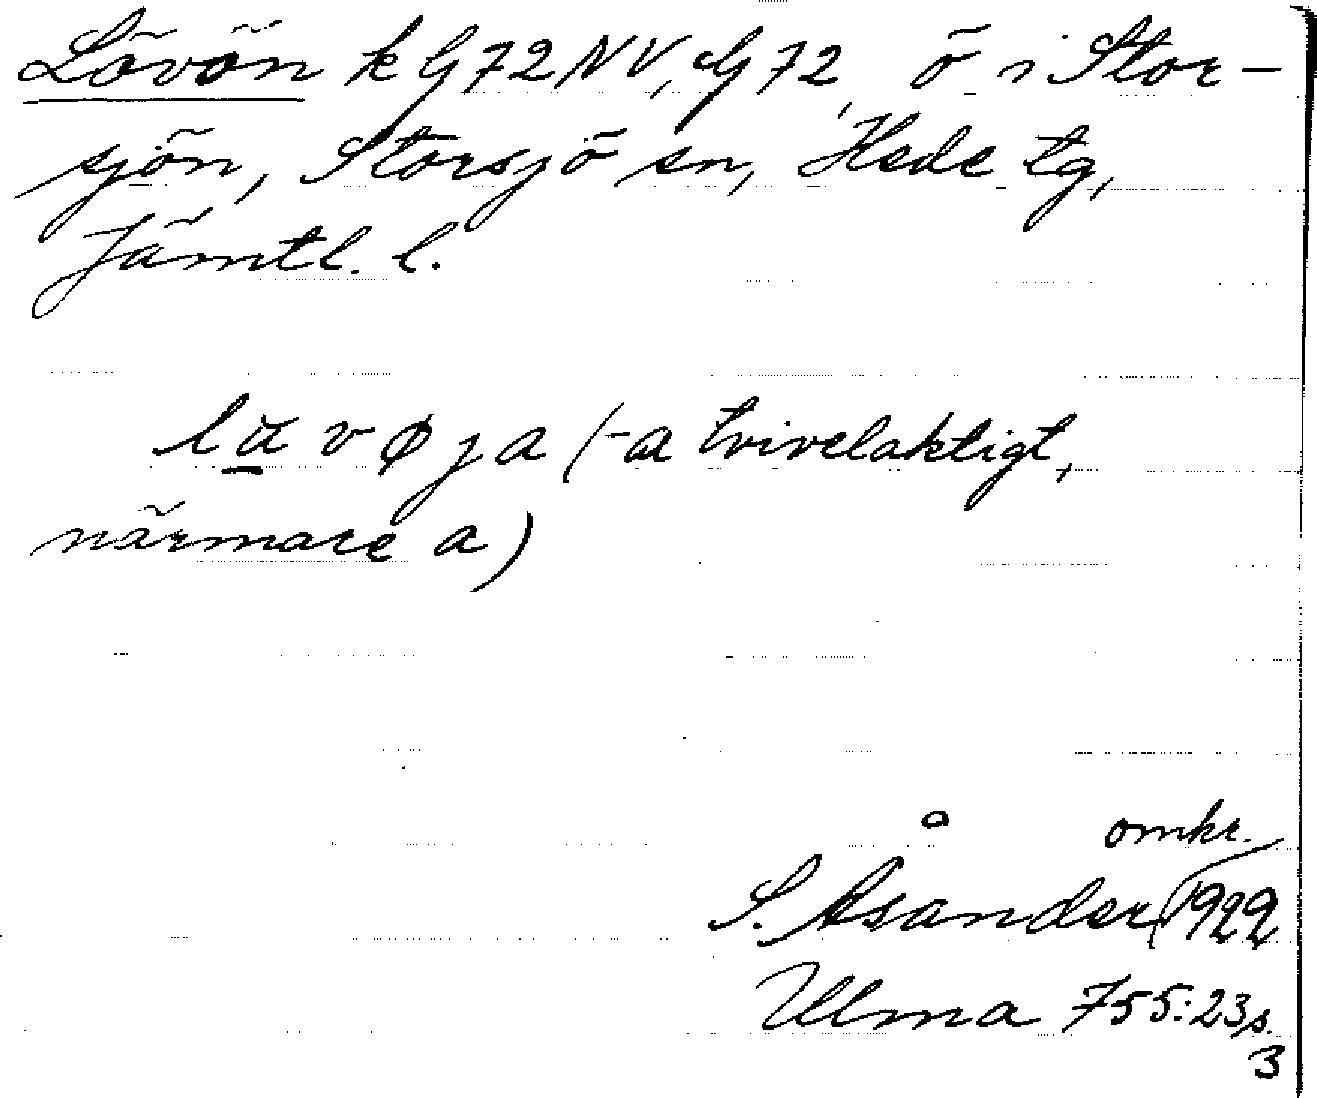 Lövön k G 72 NV, G 72, ö i Stor-
sjön, Storsjö sn, Hede tg,
Jämtl. l.
lavøja (-a tvivelaktigt,
närmare a)
omkr.
S. Åsander 1922
Ulma 755:23 s.
3